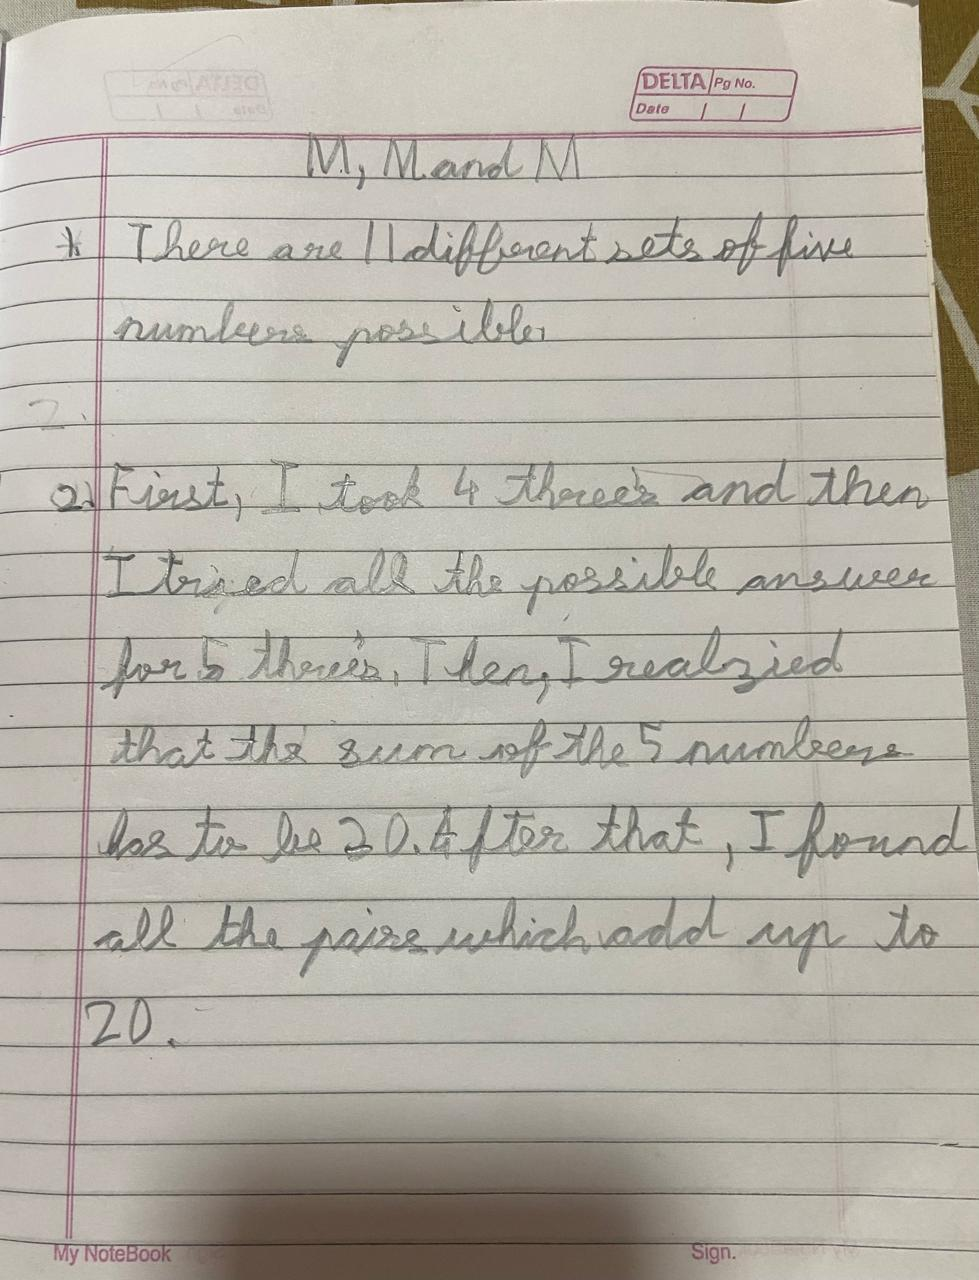 DELTA Pg No.
Date / /
M, M and M
* There are 11 different sets of five
numbers possible.
2.
Q. First, I took 4 threes and then
I tried all the possible answer
for 5 threes. Then, I realzied
that the sum of the 5 numbers
has to be 20. After that, I found
all the pairs which add up to
20.
My NoteBook Sign.